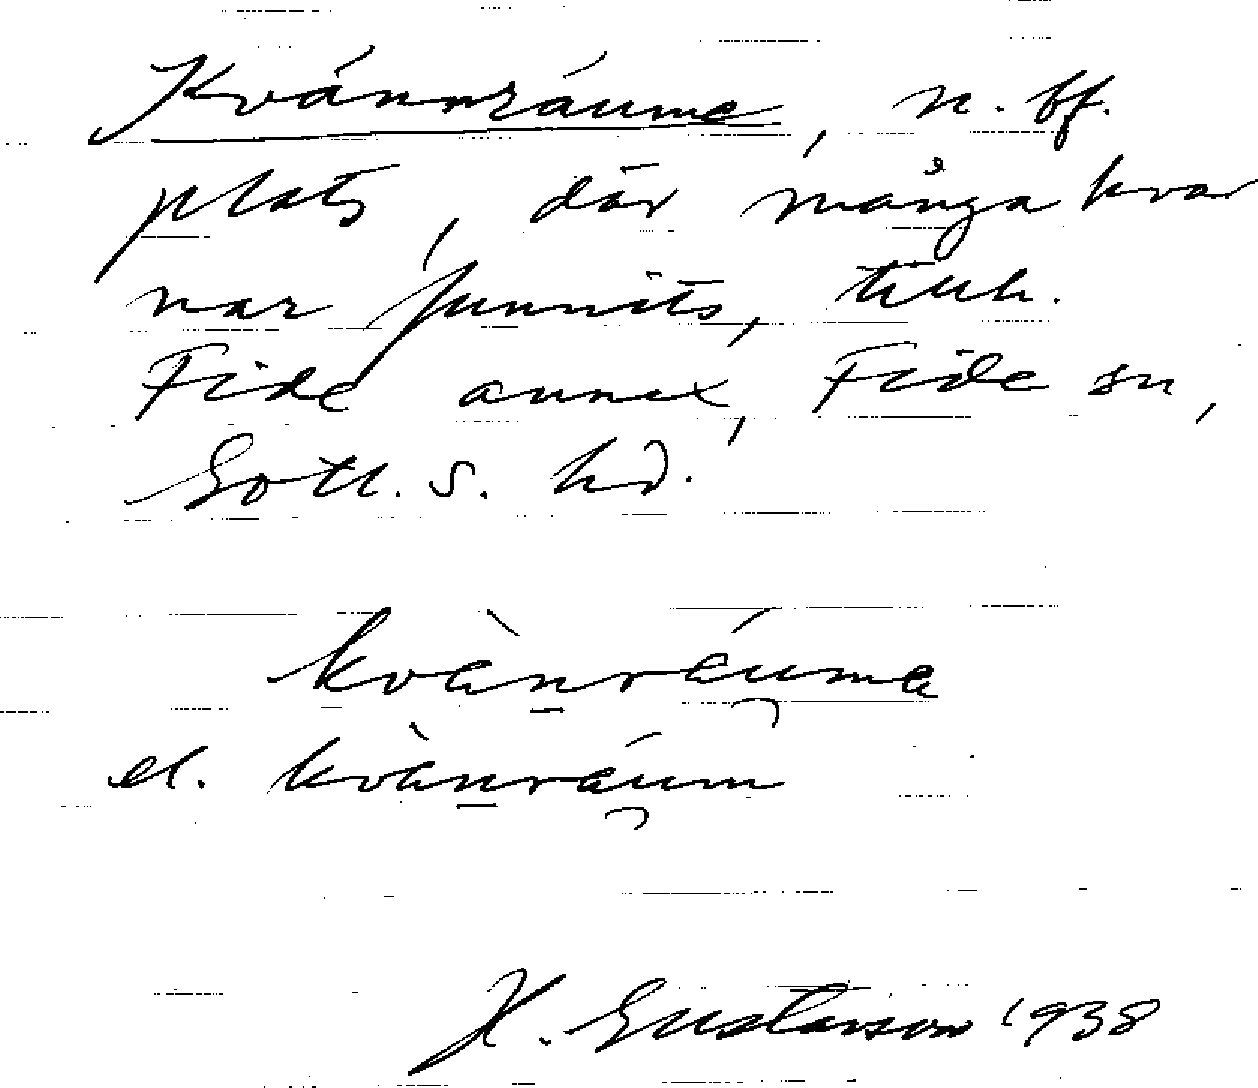 Kvánnráume, n. bf.
plats, där många kvar
nar funnits, tillh.
Fide annex, Fide sn,
Gotl. S. hd.
kvànráuma
el. kvànráum
H. Gustavson 1938